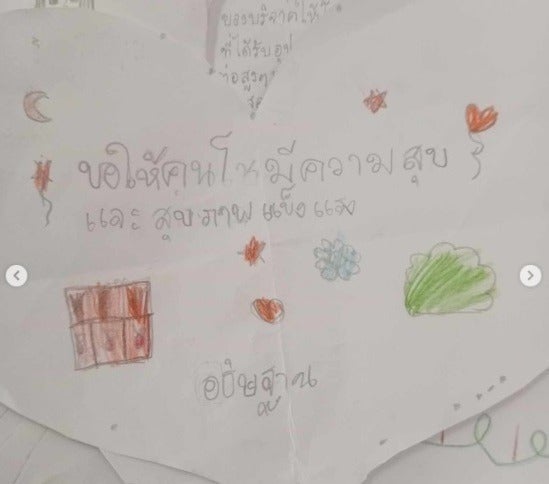 ของบริจาคให้
ที่ได้รับอุป
ขอให้คุนโชคมีความสุข
และ สุขภาพแข็งแรง
อธิษฐาน